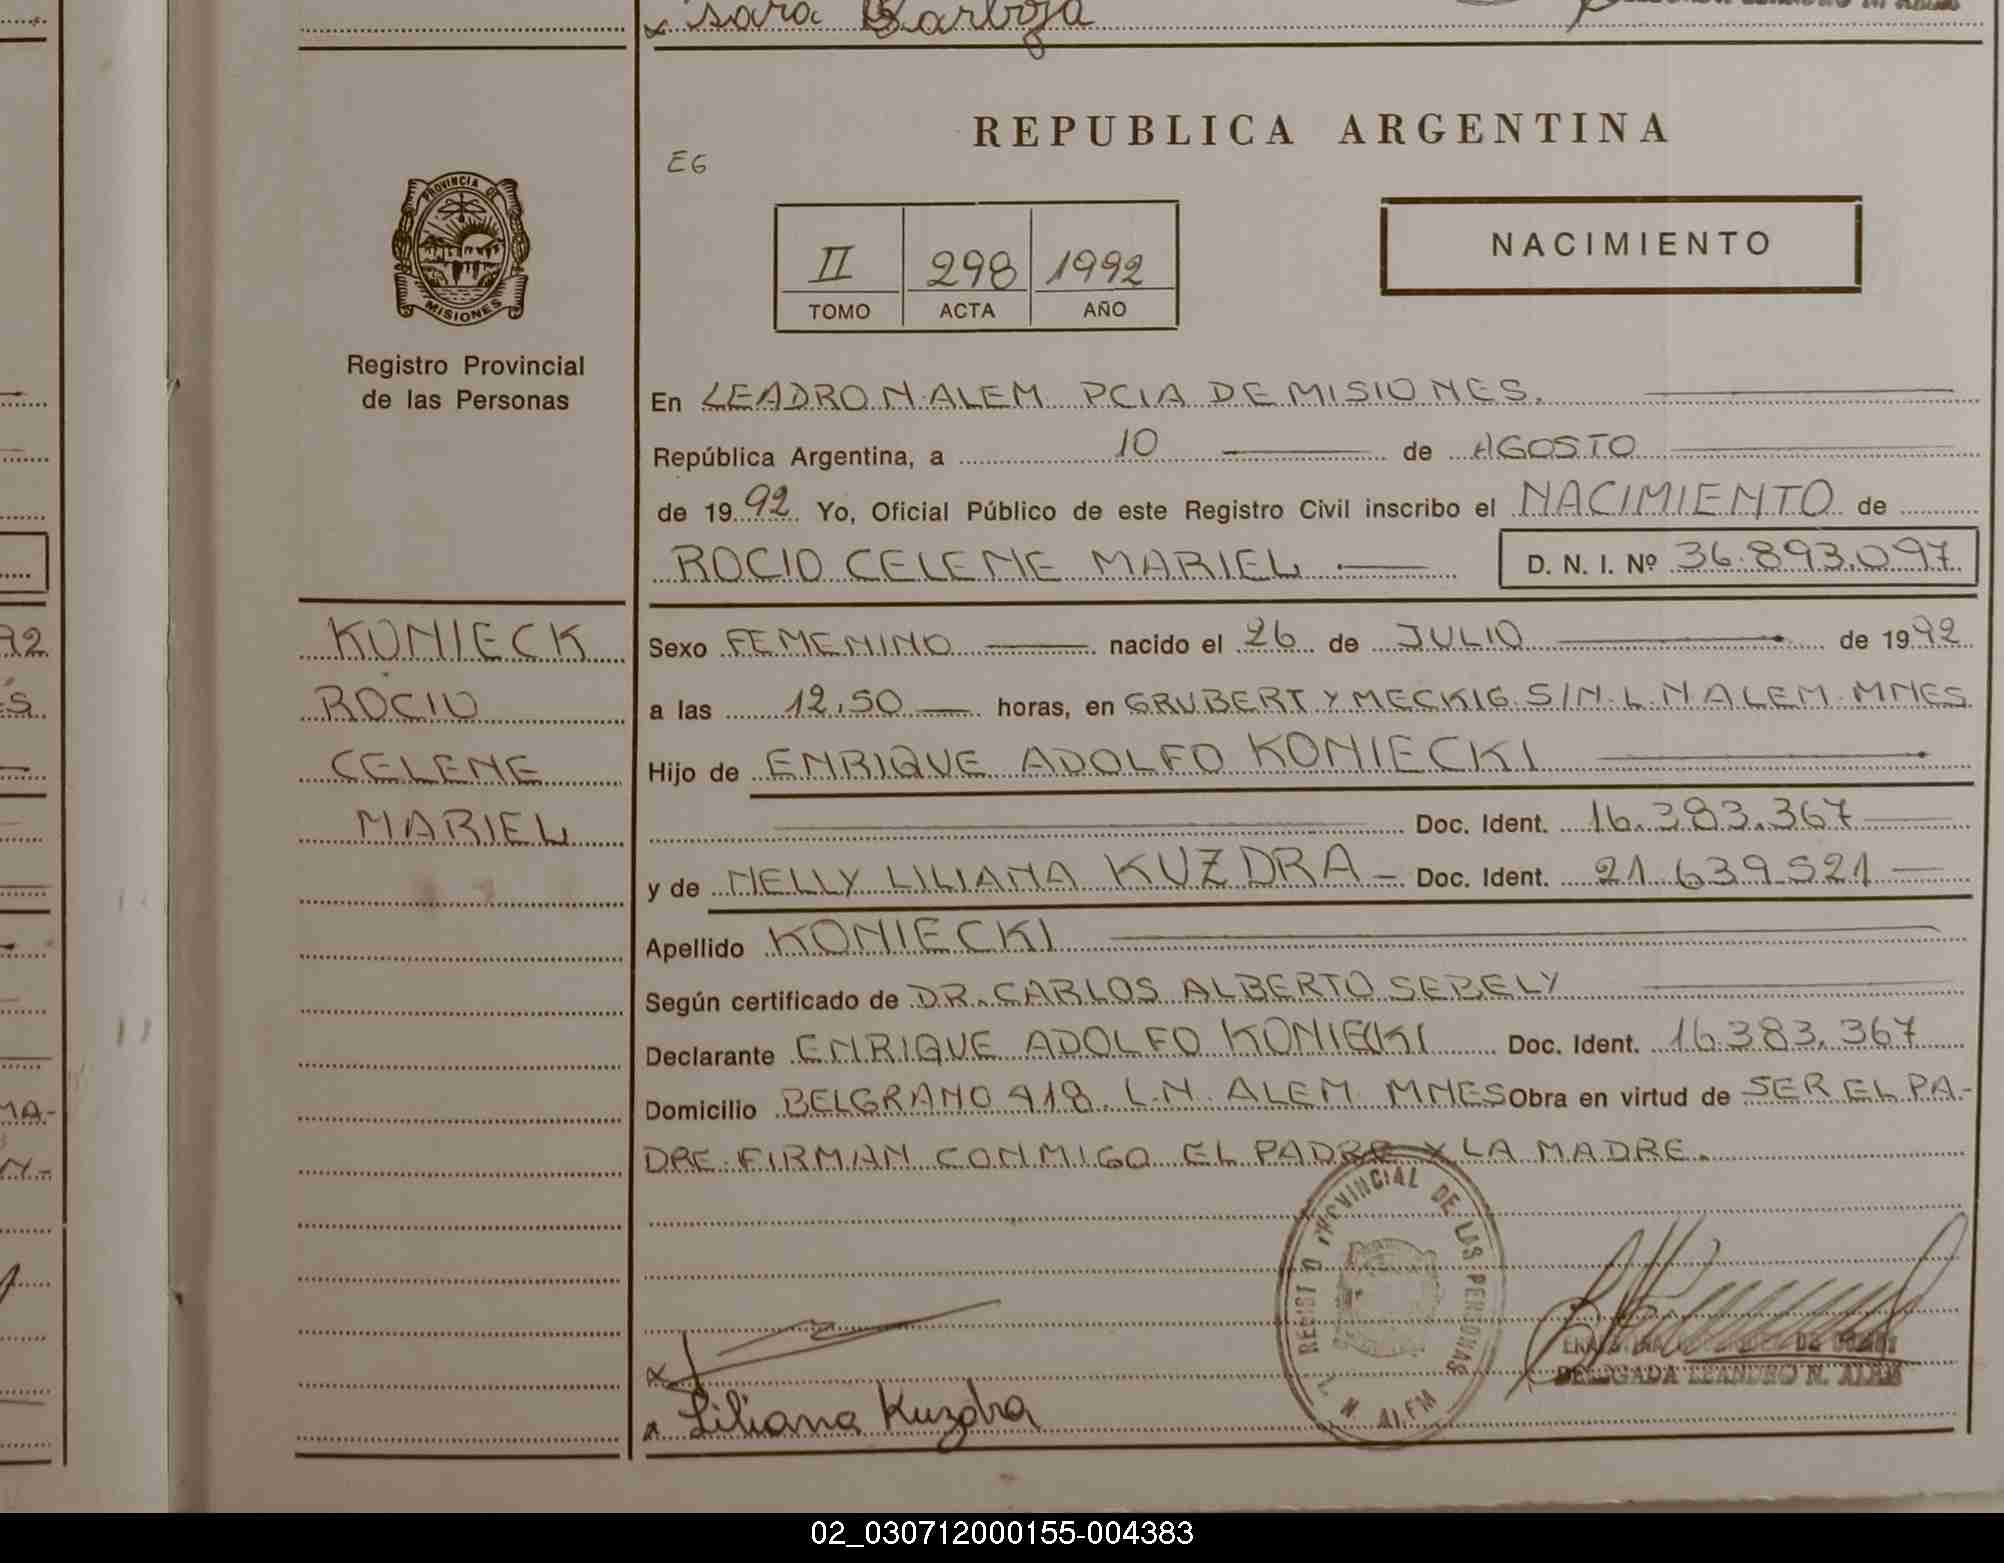 Sara Barboza
REPUBLICA ARGENTINA
EG
PROVINCIA DE
MISIONES
NACIMIENTO
II 298 1992
TOMO ACTA AÑO
Registro Provincial
de las Personas
En LEADRO N. ALEM PCIA DE MISIONES.
República Argentina, a 10 de AGOSTO
de 1992 Yo, Oficial Público de este Registro Civil inscribo el NACIMIENTO de
ROCIO CELENE MARIEL D. N. I. Nº 36.893.097
KONIECK
ROCIO
CELENE
MARIEL
Sexo FEMENINO nacido el 26 de JULIO de 1992
a las 12,50 horas, en GRUBERT Y MECKIG S/N. L. N ALEM. MNES
Hijo de ENRIQUE ADOLFO KONIECKI
Doc. Ident. 16.383.367
y de NELLY LILIANA KUZDRA - Doc. Ident. 21.639.521
Apellido KONIECKI
Según certificado de DR. CARLOS ALBERTO SEBELY
Declarante ENRIQUE ADOLFO KONIECKI Doc. Ident. 16.383.367
Domicilio BELGRANO 918. L.N. ALEM. MNES Obra en virtud de SER EL PA-
DRE. FIRMAN CONMIGO EL PADRE Y LA MADRE.
REGISTRO PROVINCIAL DE LAS PERSONAS
L. N. ALEM
DELEGADA LEANDRO N. ALEM
Liliana Kuzdra
02_030712000155-004383